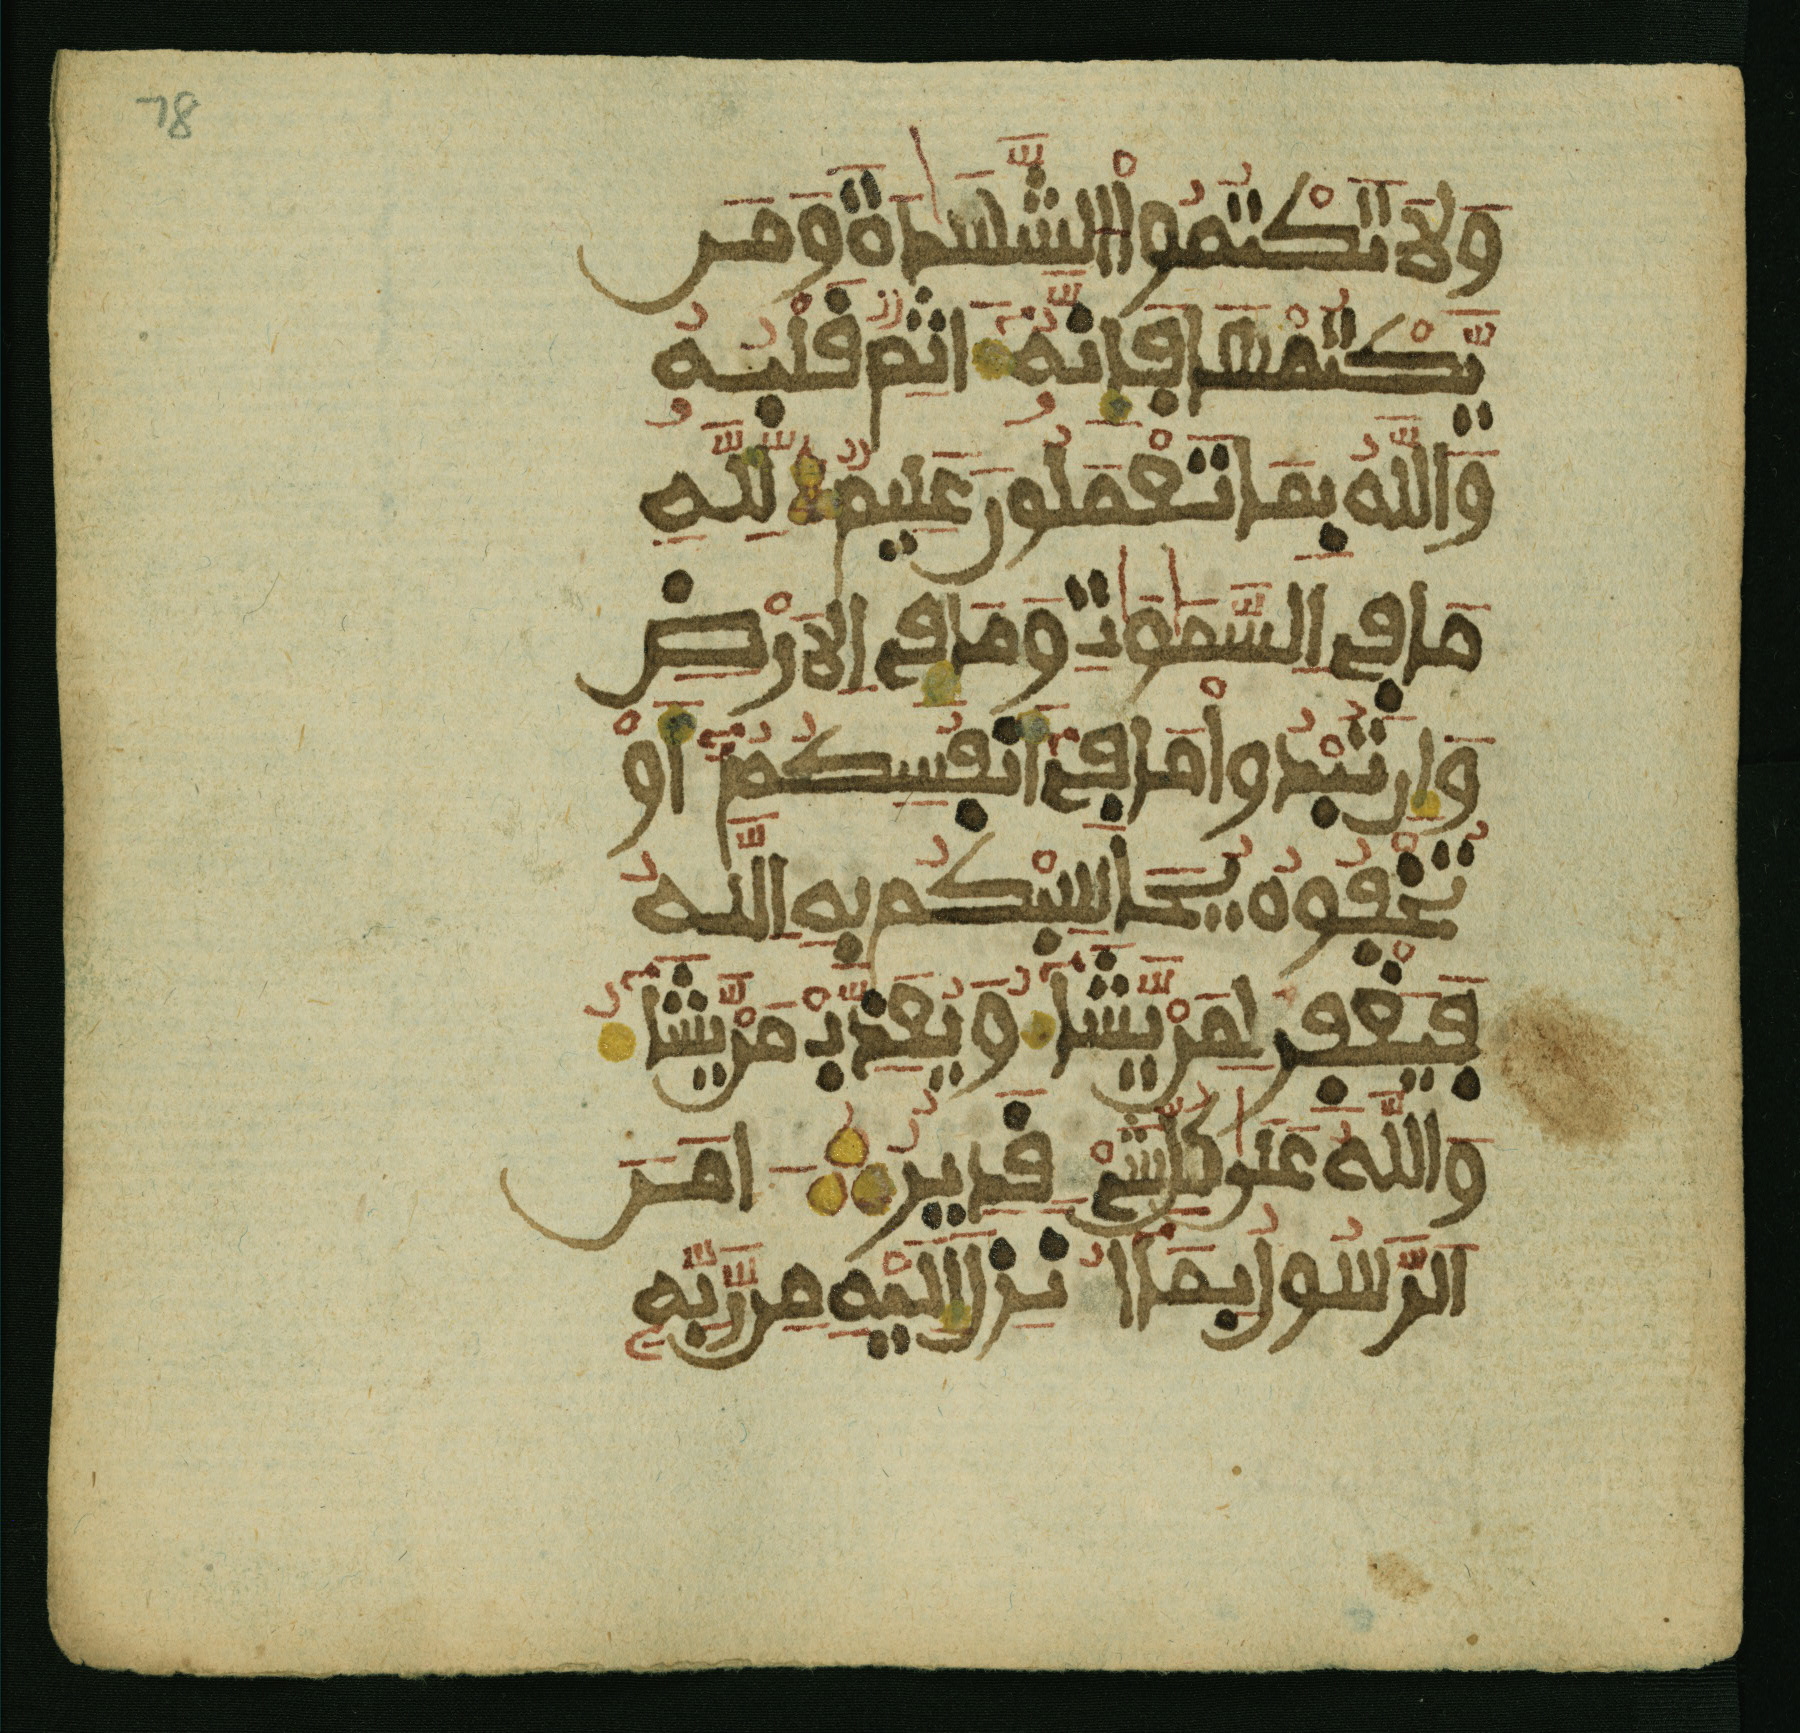 78
وَلَا تَكْتُمُواْ الشَّهَٰدَةَ وَمَن
يَّكْتُمْهَا فَإِنَّهُۥٓ ءَاثِمٌ قَلْبُهُۥ
وَاللَّهُ بِمَا تَعْمَلُونَ عَلِيمٌ لِّلَّهِ
مَا فِي السَّمَٰوَٰتِ وَمَا فِي الَارْضِ
وَإِن تُبْدُواْ مَا فِيٓ أَنفُسِكُمُۥٓ أَوْ
تُخْفُوهُ يُحَاسِبْكُم بِهِ اللَّهُ
فَيَغْفِرْ لِمَنْ يَّشَآءُ وَيُعَذِّبْ مَنْ يَّشَآءُ
وَاللَّهُ عَلَىٰ كُلِّ شَيْءٍ قَدِيرٌ ءَامَنَ
الرَّسُولُ بِمَآ أُنزِلَ إِلَيْهِ مِن رَّبِّهِۦ